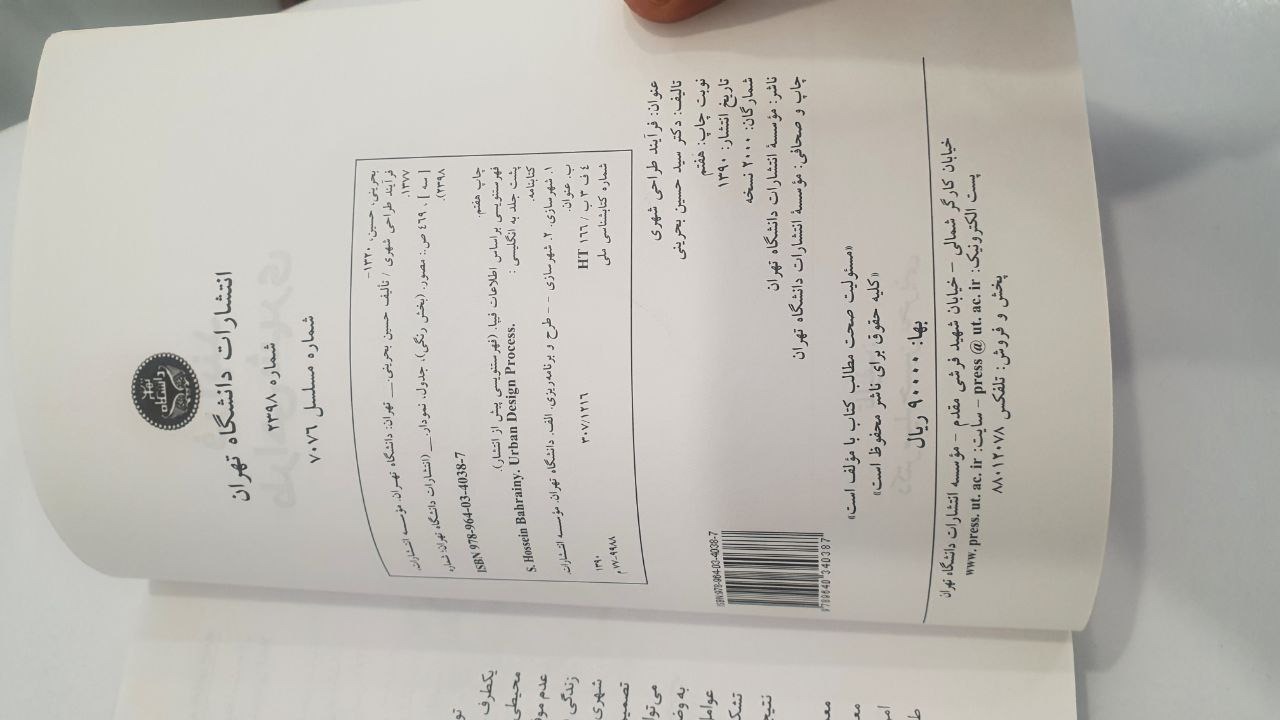 دانشگاه تهران
انتشارات دانشگاه تهران
شماره ۲۳۹۸
شماره مسلسل ۷۰۷۶
بحرینی، حسین، ۱۳۲۰-
فرآیند طراحی شهری / تألیف حسین بحرینی. __ تهران: دانشگاه تهران، مؤسسه انتشارات،
۱۳۷۷.
[سه]، ٤٦٩ ص: مصور، (بخش رنگی)، جدول، نمودار. __ (انتشارات دانشگاه تهران؛ شماره
۲۳۹۸).
ISBN 978-964-03-4038-7
چاپ هفتم.
فهرستنویسی براساس اطلاعات فیپا. (فهرستنویسی پیش از انتشار).
پشت جلد به انگلیسی: S. Hossein Bahrainy. Urban Design Process.
کتابنامه.
۱. شهرسازی. ۲. شهرسازی -- طرح و برنامه‌ریزی. الف. دانشگاه تهران. مؤسسه انتشارات.
ب. عنوان.
٤ ف ۳ ب / ١٦٦ HT ۳۰۷/۱۲۱٦ ۱۳۹۰
شماره کتابشناسی ملی ۷۷-۹۹۸۸ م
عنوان: فرآیند طراحی شهری
تألیف: دکتر سید حسین بحرینی
نوبت چاپ: هفتم
تاریخ انتشار: ۱۳۹۰
شمارگان: ۲۰۰۰ نسخه
ناشر: مؤسسهٔ انتشارات دانشگاه تهران
چاپ و صحافی: مؤسسهٔ انتشارات دانشگاه تهران
«مسئولیت صحت مطالب کتاب با مؤلف است»
«کلیه حقوق برای ناشر محفوظ است»
بها: ۹۰۰۰۰ ریال
ISBN:978-964-03-4038-7
9789640340387
خیابان کارگر شمالی - خیابان شهید فرشی مقدم - مؤسسه انتشارات دانشگاه تهران
پست الکترونیک: press @ ut. ac. ir - سایت: www. press. ut. ac. ir
پخش و فروش: تلفکس ۸۸۰۱۲۰۷۸
یکطرف
محیطی
زندگی
شهری
عوامل